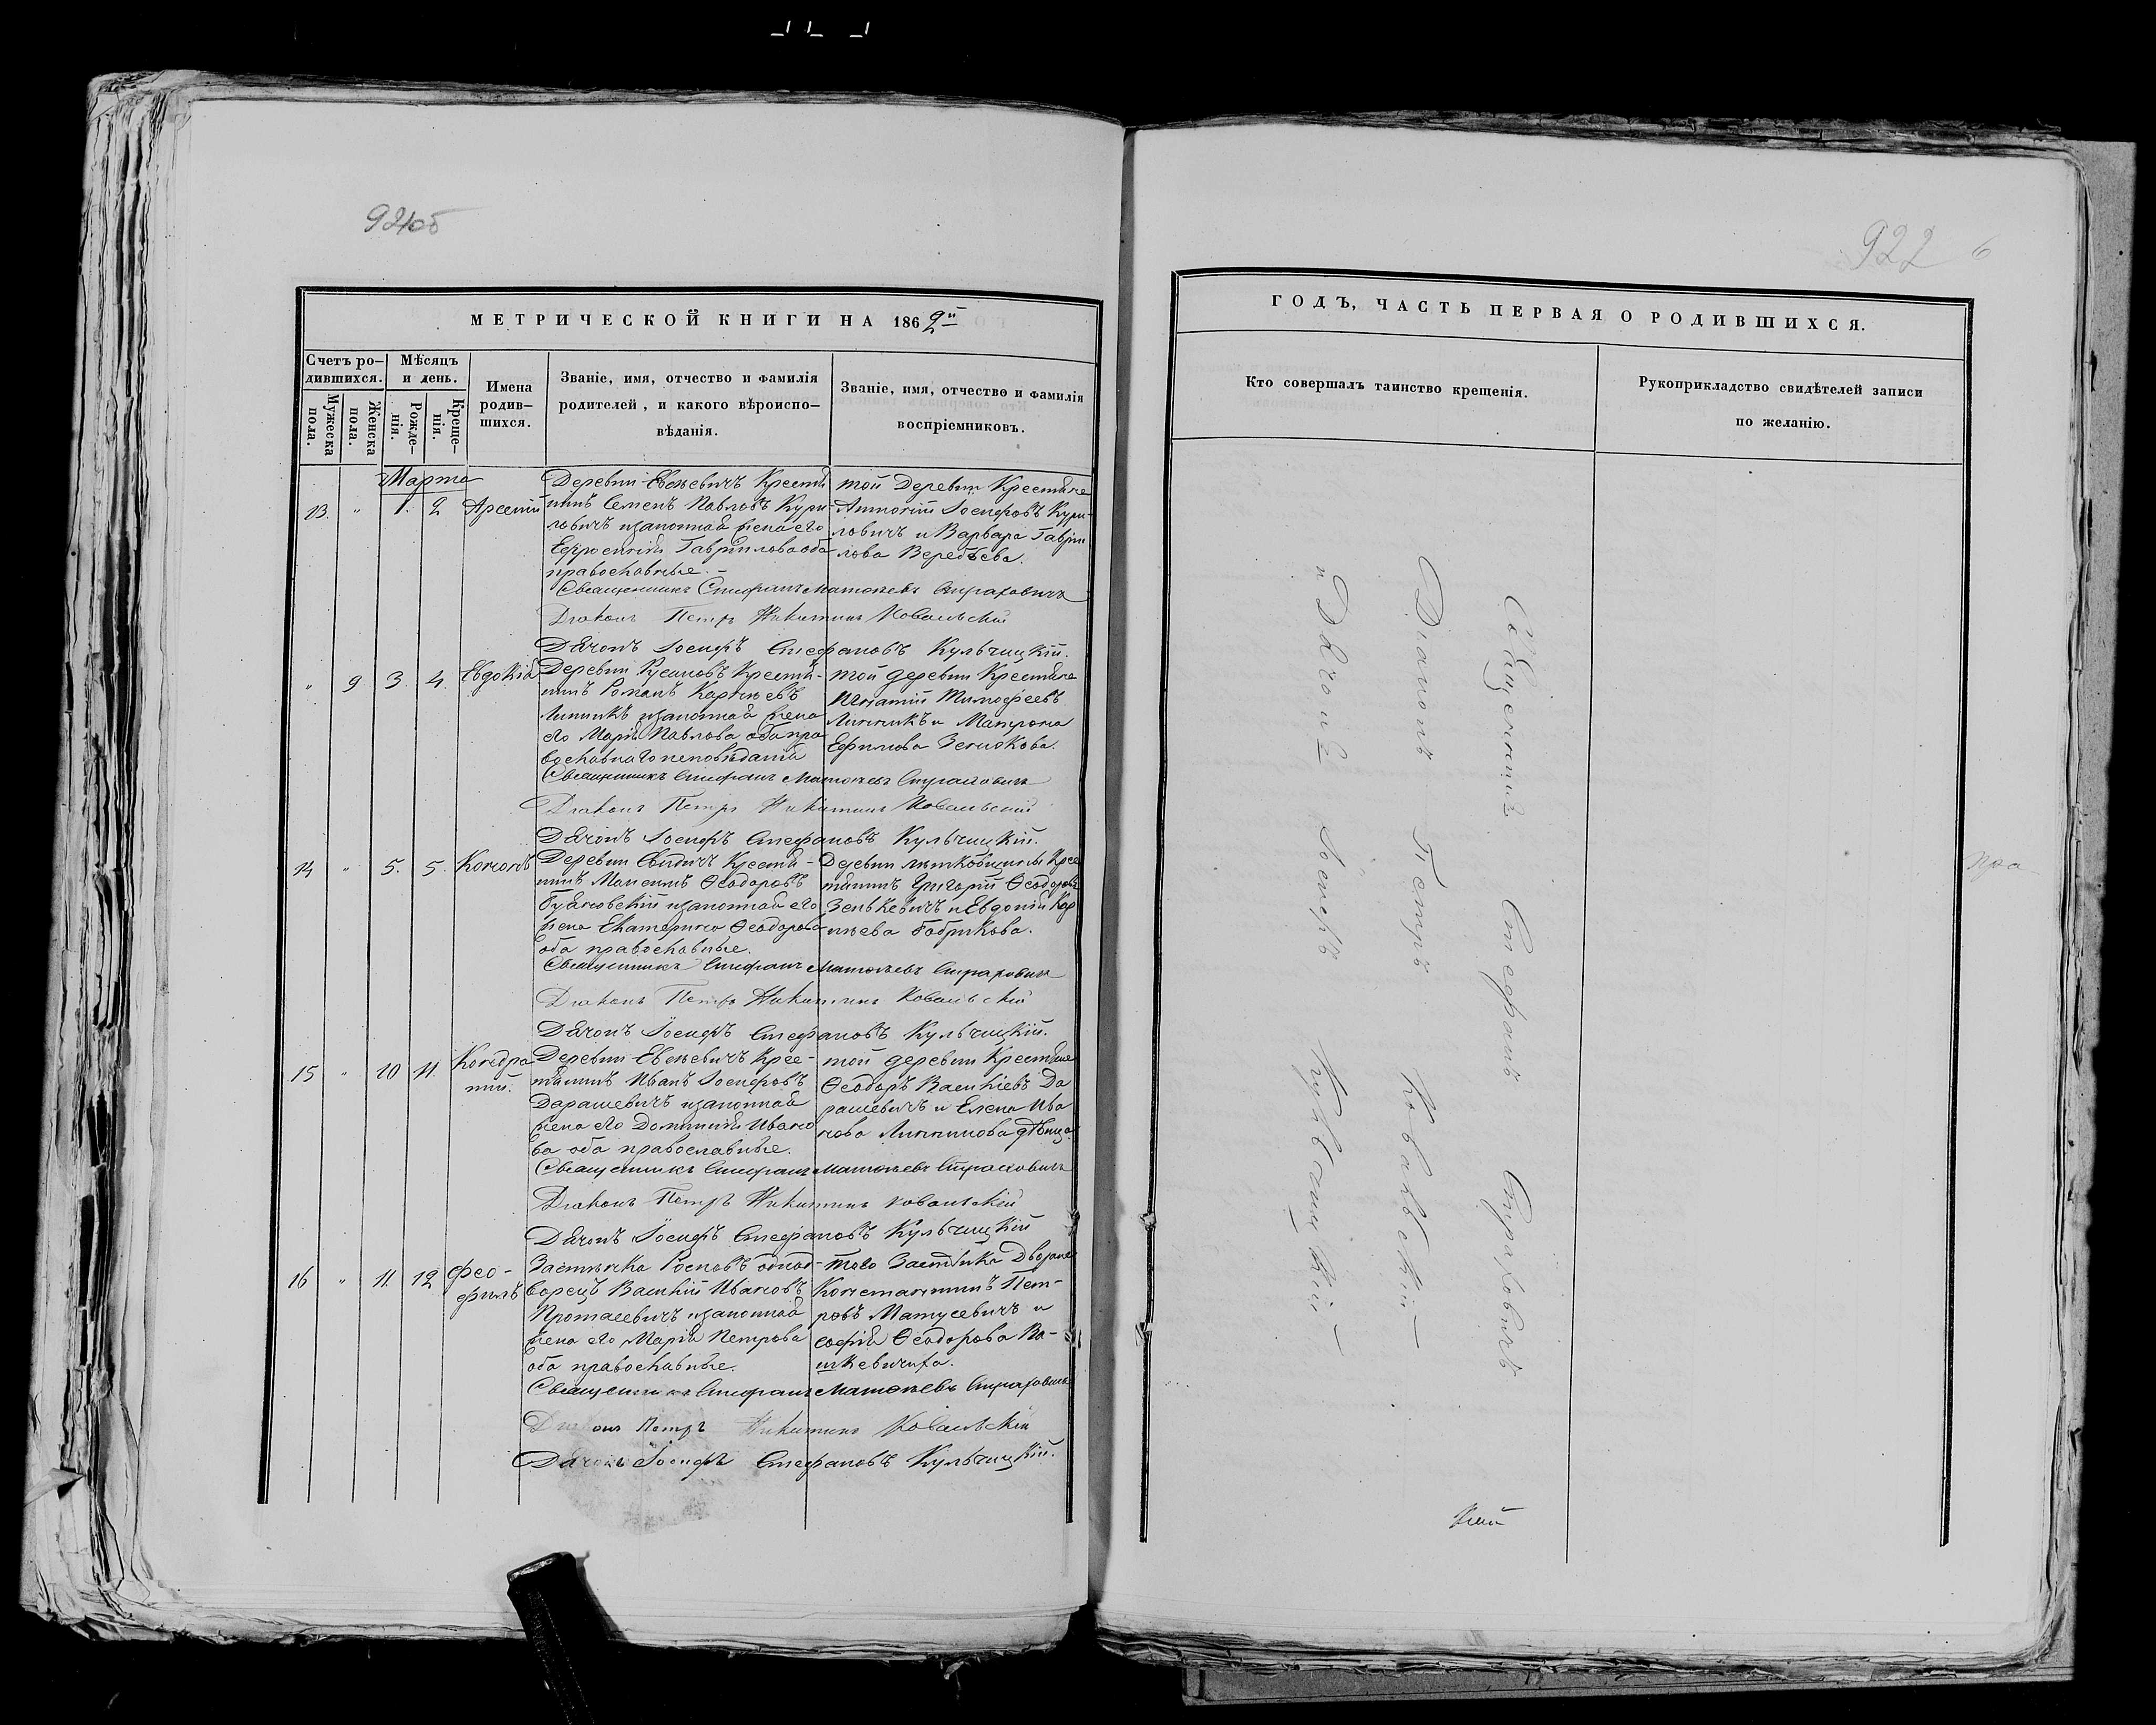 922 6
МЕТРИЧЕСКОЙ КНИГИ НА 1869й
Счетъ ро-
дившихся.
Мѣсяцъ
и день.
Мужеска
пола.
Женска
пола.
Рожде-
нія.
Креще-
нія.
Имена
родив-
шихся.
Званіе, имя, отчество и фамилія
родителей, и какого вѣроиспо-
вѣданія.
Званіе, имя, отчество и фамилія
воспріемниковъ.
Марта
13. " 1. 2 Арсений
Деревни Крестья
нинъ Семенъ Павловъ Кури-
ловичъ изаконная жена его
Гаврилова оба
православные.-
той Деревни Крестьяне
Антоній Іосифовъ Кури-
ловичъ и Варвара Гаври
лова
Священникъ Стефанъ Матѳеевъ Страховичъ
Діаконъ Петръ Никитинъ Ковальскій
Дьячокъ Іосифъ Стефановъ Кульчицкій.
" 9 3. 4. Евдокія
Деревни Крестья-
нинъ Романъ Карнѣевъ
Линникъ изаконная жена
его Марія Павлова оба пра
вославнаго исповѣданія
той деревни Крестьяне
Игнатій Тимофеевъ
Линникъ и Матрона
Ефимова Зенюкова.
Священникъ Стефанъ Матѳеевъ Страховичъ
Діаконъ Петръ Никитинъ Ковальскій
Дьячокъ Іосифъ Стефановъ Кульчицкій.
14 " 5. 5. Кононъ
Деревни Крестья-
нинъ Ѳеодоровъ
изаконная его
жена Екатерина Ѳеодорова
оба православные.
Деревни Крес
тьянинъ Григорій Ѳеодоровъ
Зенькевичъ и Евдокія Кар
нѣева Бобрикова.
Священникъ Стефанъ Матѳеевъ Страховичъ
Діаконъ Петръ Никитинъ Ковальскій
Дьячокъ Іосифъ Стефановъ Кульчицкій.
15 " 10 11. Кондра
тій.
Деревни Крес-
тьянинъ Иванъ Іосифовъ
Дарашевичъ изаконная
жена его Домникія Ивано
ва оба православные.
той деревни Крестьяне
Ѳеодоръ Василіевъ Да
рашевичъ и Елена Ива
нова Линникова дѣвица.
Священникъ Стефанъ Матѳеевъ Страховичъ
Діаконъ Петръ Никитинъ Ковальскій
Дьячокъ Іосифъ Стефановъ Кульчицкій
16 " 11. 12 Фео-
филъ
Застѣнка Росковъ однод-
ворецъ Василій Ивановъ
Протасевичъ изаконная
жена его Марія Петрова
оба православные.
того Застѣнка Дворяне
Константинъ Пет-
ровъ Матусевичъ и
Софія Ѳеодорова Ва-
шкевичиха.
Священникъ Стефанъ Матѳеевъ Страховичъ
Діаконъ Петръ Никитинъ Ковальскій
Дьячокъ Іосифъ Стефановъ Кульчицкій.
ГОДЪ, ЧАСТЬ ПЕРВАЯ О РОДИВШИХСЯ.
Кто совершалъ таинство крещенія.
Рукоприкладство свидѣтелей записи
по желанію.
Священникъ Стефанъ Страховичъ
Діаконъ Петръ Ковальскій —
и Дьячокъ Іосифъ Кульчицкій —